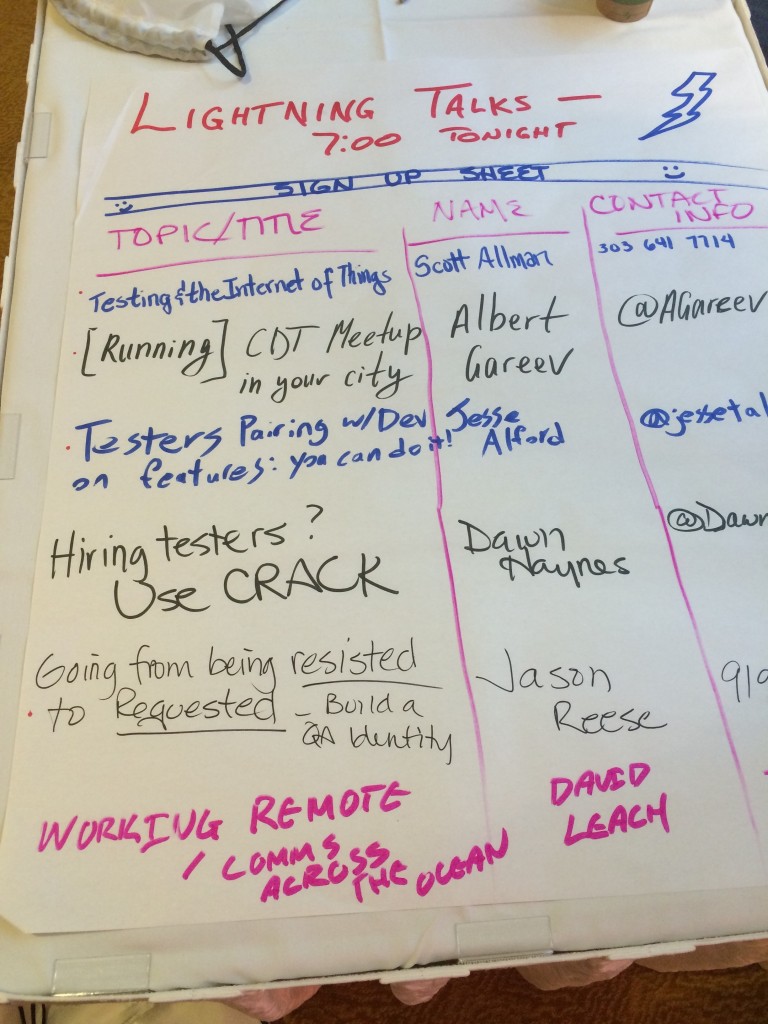 LIGHTNING TALKS —
7:00 TONIGHT
SIGN UP SHEET
TOPIC/TITLE
NAME
CONTACT INFO
Testing & the Internet of Things
Scott Allman
303 641 7714
[Running] CDT Meetup
in your city
Albert
Gareev
@AGareev
Testers Pairing w/Dev
on features: you can do it!
Jesse
Alford
@jesseta
Hiring testers?
Use CRACK
Dawn
Haynes
@Dawn
Going from being resisted
to Requested – Build a
QA Identity
Jason
Reese
919
WORKING REMOTE
/ COMMS
ACROSS
THE OCEAN
DAVID
LEACH